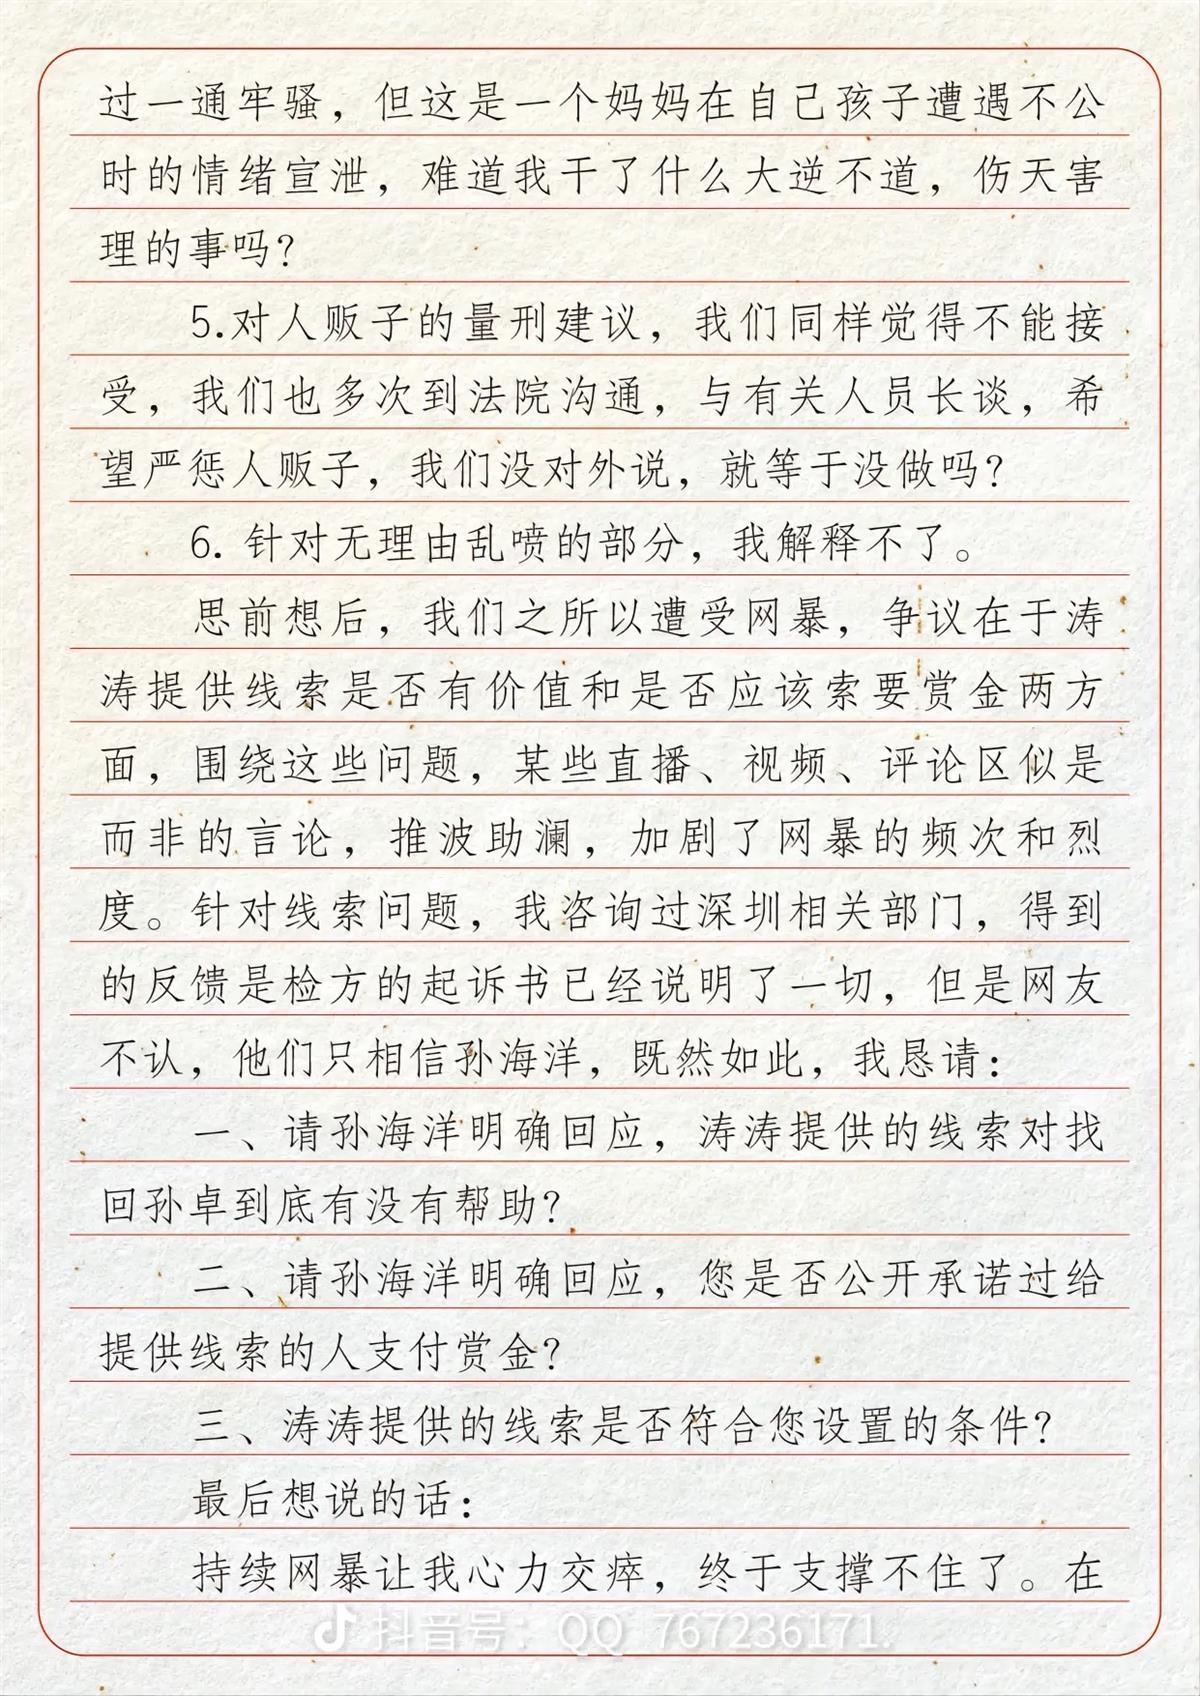 过一通牢骚，但这是一个妈妈在自己孩子遭遇不公
时的情绪宣泄，难道我干了什么大逆不道，伤天害
理的事吗？
5.对人贩子的量刑建议，我们同样觉得不能接
受，我们也多次到法院沟通，与有关人员长谈，希
望严惩人贩子，我们没对外说，就等于没做吗？
6. 针对无理由乱喷的部分，我解释不了。
思前想后，我们之所以遭受网暴，争议在于涛
涛提供线索是否有价值和是否应该索要赏金两方
面，围绕这些问题，某些直播、视频、评论区似是
而非的言论，推波助澜，加剧了网暴的频次和烈
度。针对线索问题，我咨询过深圳相关部门，得到
的反馈是检方的起诉书已经说明了一切，但是网友
不认，他们只相信孙海洋，既然如此，我恳请：
一、请孙海洋明确回应，涛涛提供的线索对找
回孙卓到底有没有帮助？
二、请孙海洋明确回应，您是否公开承诺过给
提供线索的人支付赏金？
三、涛涛提供的线索是否符合您设置的条件？
最后想说的话：
持续网暴让我心力交瘁，终于支撑不住了。在
抖音号：QQ_767236171.